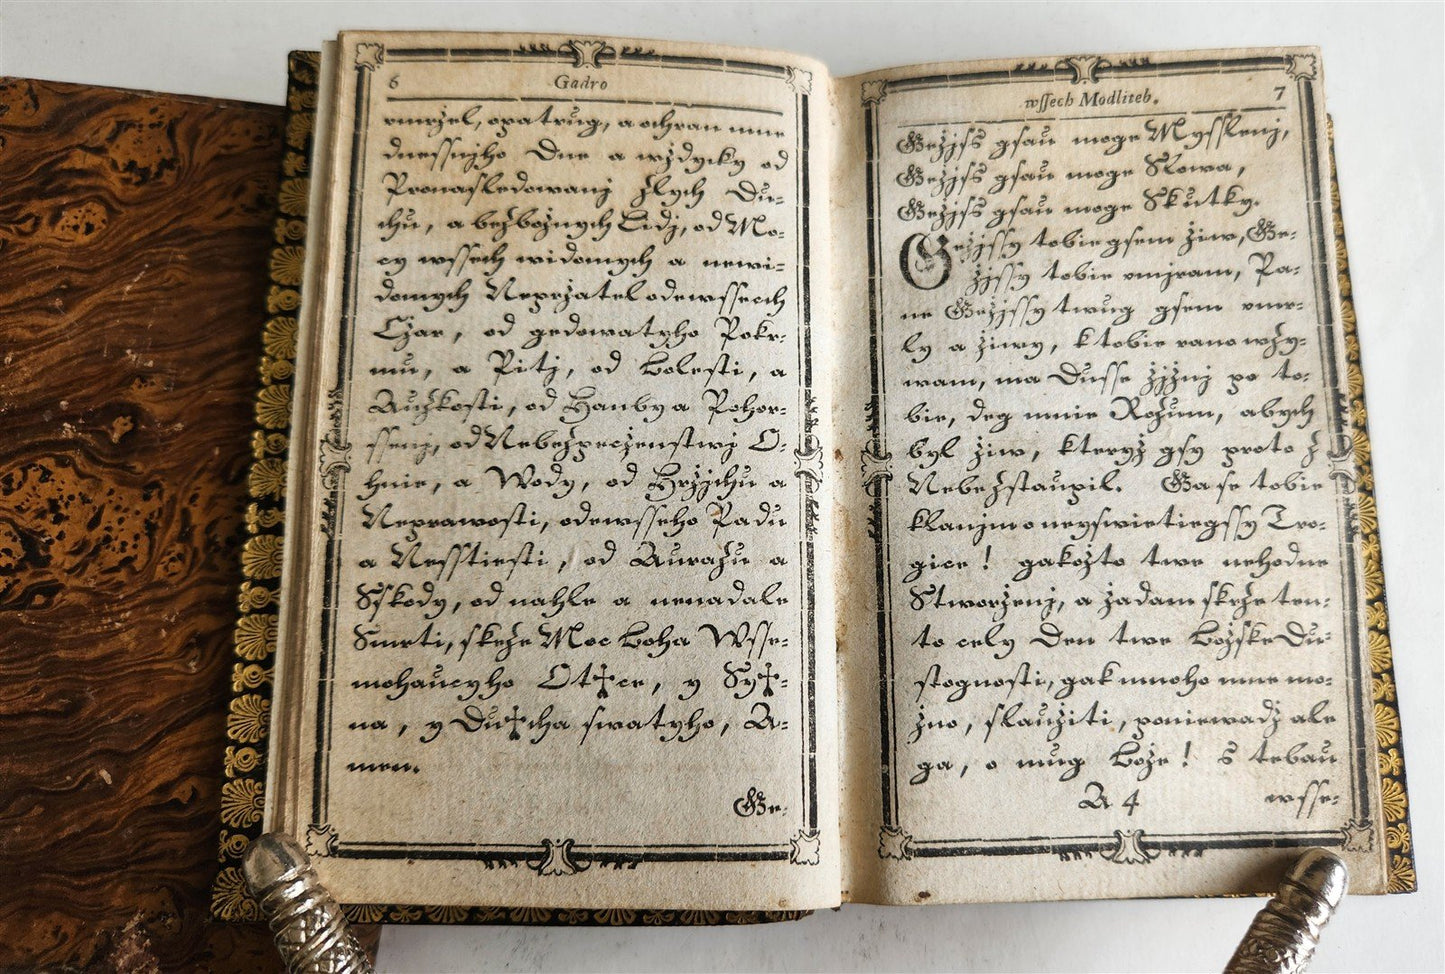 6 Gadro
vmržel, opatrug, a ochran mne
dnessnjho Dne a wždycky od
Pronasledowanj žlych Du-
chu, a bežbožnych Lidj, od Mo-
cy wssech widomych a newi-
domych Nepržatel odewssech
Čzar, od gedowatyho Pokr-
mu, a Pitj, od Bolesti, a
Aužkosti, od Hanby a Pohor-
ssenj, od Nebežpeoženstwj O-
hnie, a Wody, od Hržjchu a
Neprawosti, odewsseho Padu
a Nesstiesti, od Auražu a
Sskody, od nahle a nenadale
Smrti, skrže Moc Boha Wsse-
mohaucyho Ot✝ce, y Sy✝-
na, y Du✝cha swatyho, A-
men.
Ge-
wssech Modliteb. 7
Gežjss gsau moge Mysslenj,
Gežjss gsau moge Slowa,
Gežjss gsau moge Skutky.
Gežjssy tobie gsem žiw, Ge-
žjssy tobie vmjram, Pa-
ne Gežjssy twug gsem vmr-
ly a žiwy, k tobie rano wžy-
wam, ma Dusse žjžnj po to-
bie, deg mnie Rožum, abych
byl žiw, kteryž gsy proto ž
Nebe žstaupil. Ga se tobie
klanjm o neyswietiegssy Tro-
gice! gakožto twe nehodne
Stworženj, a žadam skrže ten-
to cely Den twe Božske Du-
stognosti, gak mnoho mne mo-
žno, slaužiti, poniewadž ale
ga, o mug Bože! s tebau
A 4 wsse-